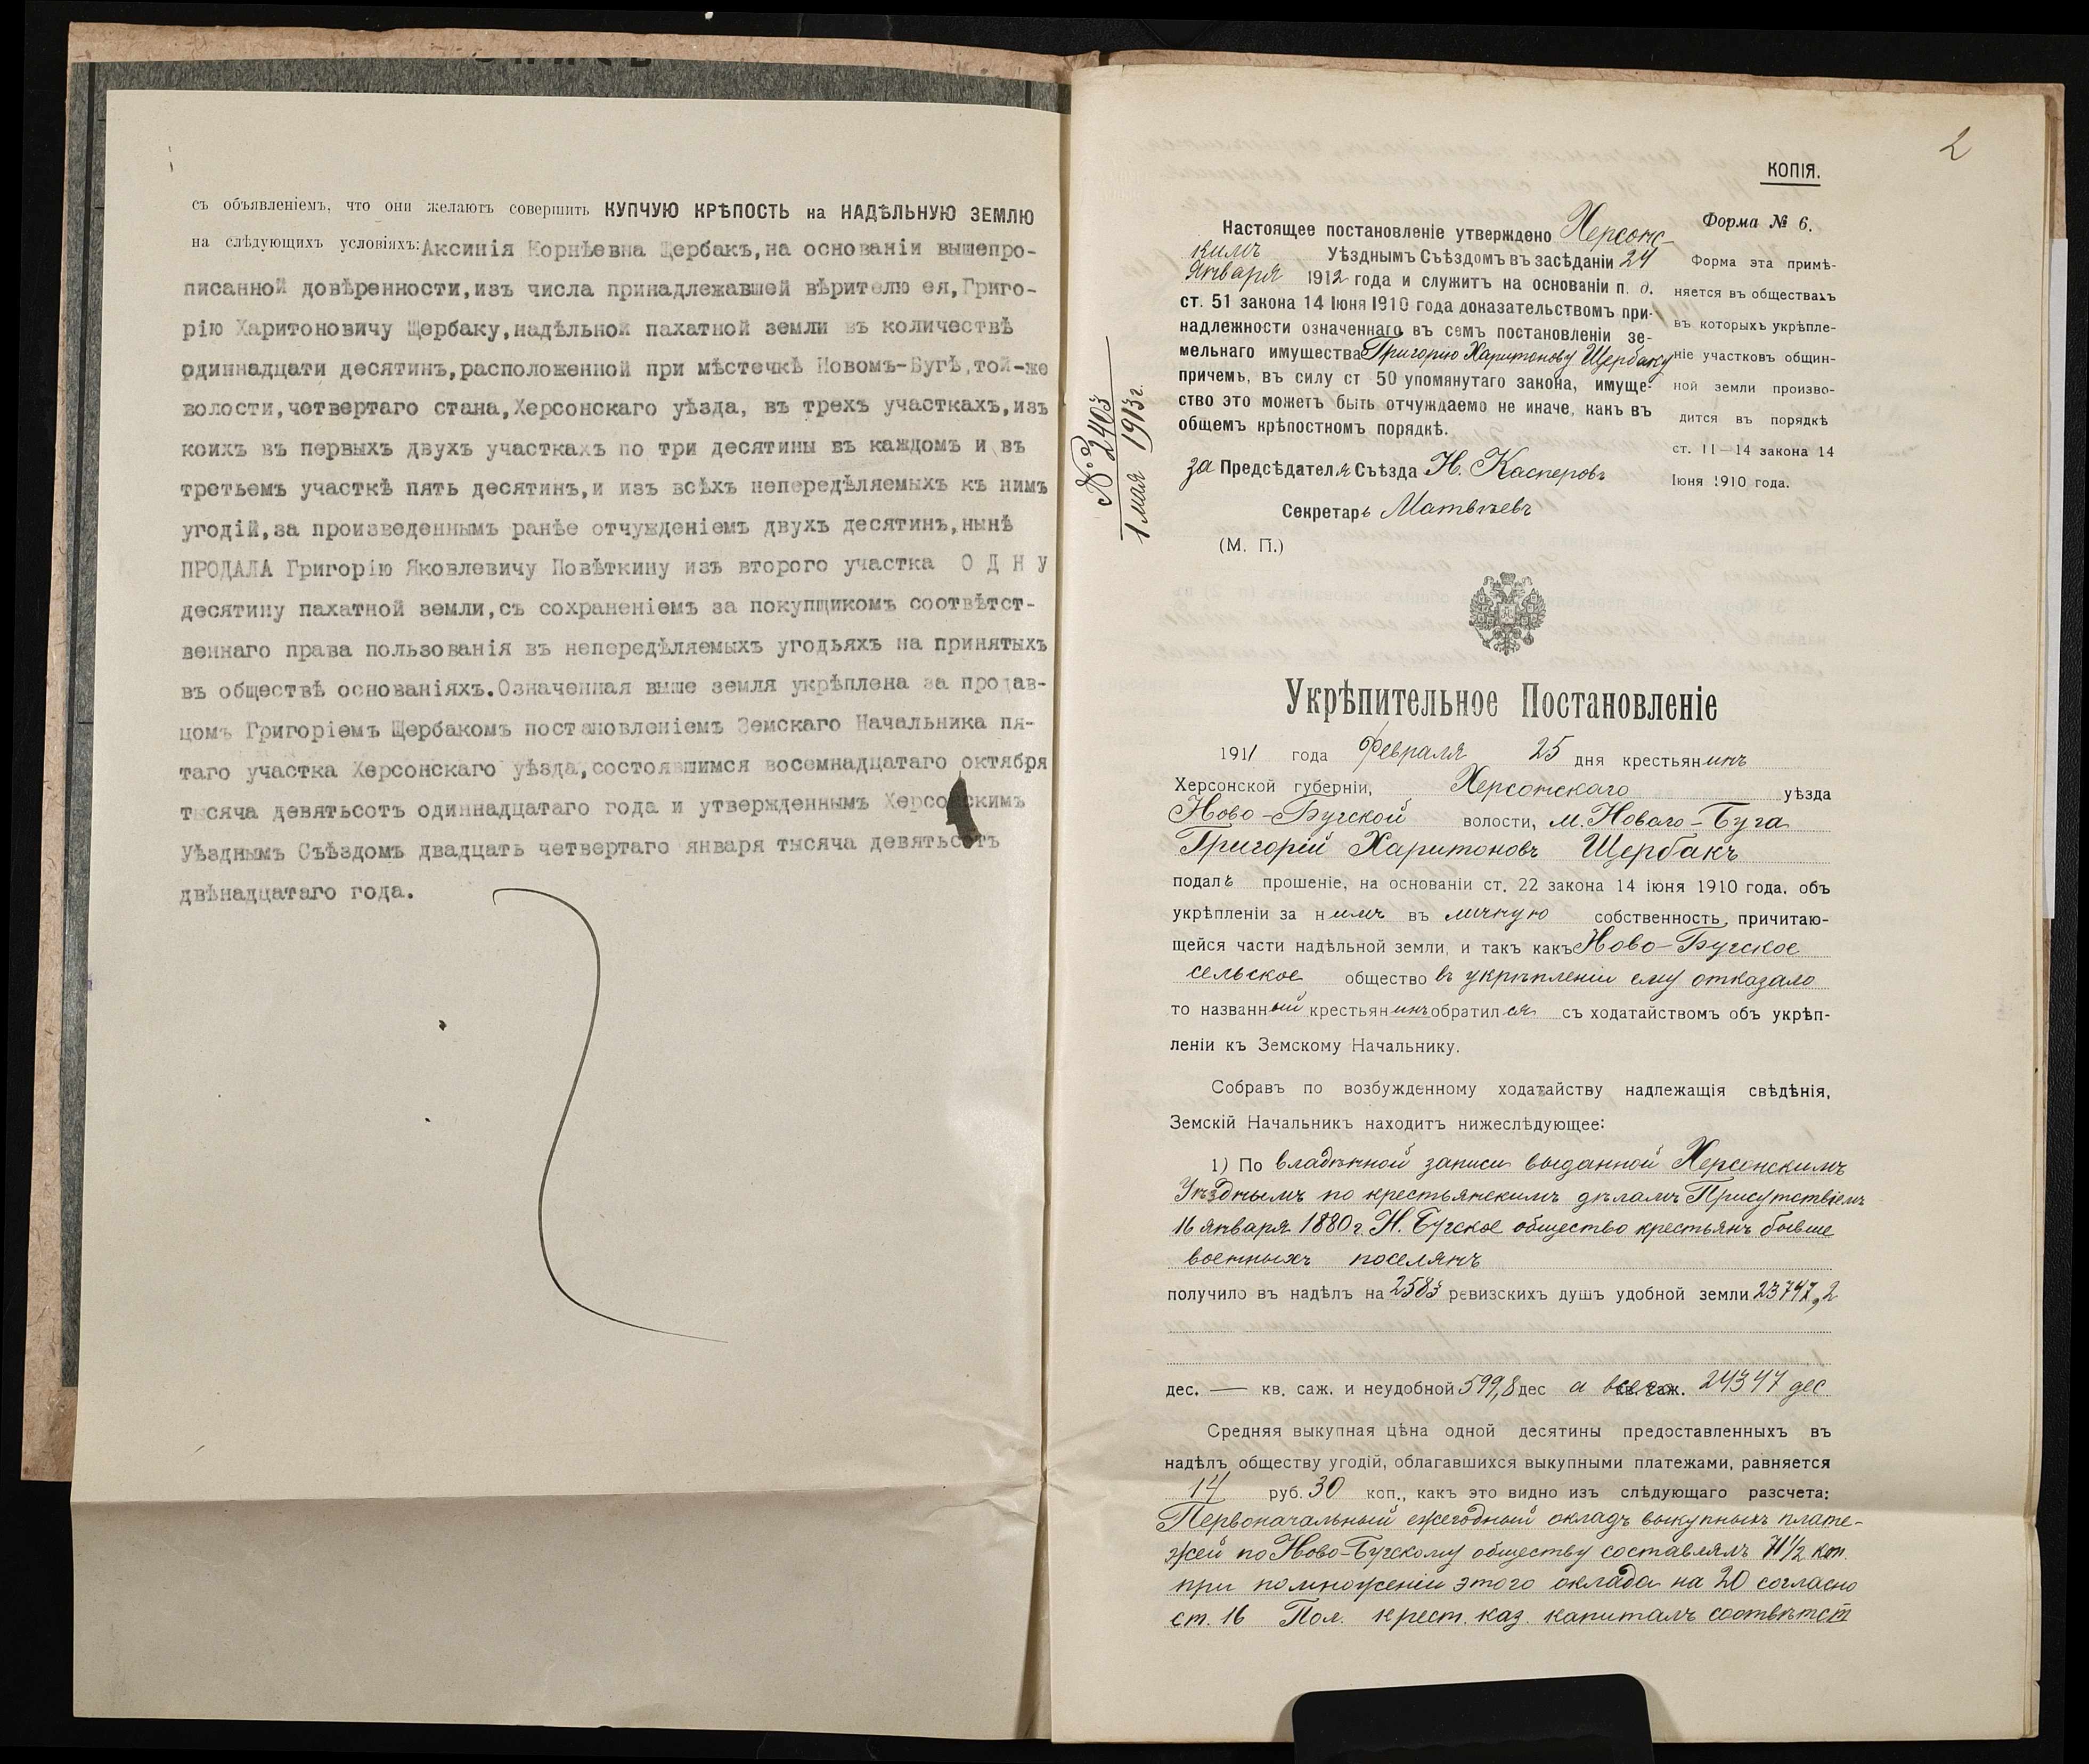 съ объявленіемъ, что они желаютъ совершить КУПЧУЮ КРѢПОСТЬ на НАДѢЛЬНУЮ ЗЕМЛЮ
на слѣдующихъ условіяхъ: Аксинія Корнѣевна Щербакъ, на основаніи вышепро-
писанной довѣренности, изъ числа принадлежавшей вѣрителю ея, Григо-
рію Харитоновичу Щербаку, надѣльной пахатной земли въ количествѣ
одиннадцати десятинъ, расположенной при мѣстечкѣ Новомъ-Бугѣ, той-же
волости, четвертаго стана, Херсонскаго уѣзда, въ трехъ участкахъ, изъ
коихъ въ первыхъ двухъ участкахъ по три десятины въ каждомъ и въ
третьемъ участкѣ пять десятинъ, и изъ всѣхъ непередѣляемыхъ къ нимъ
угодій, за произведеннымъ ранѣе отчужденіемъ двухъ десятинъ, нынѣ
ПРОДАЛА Григорію Яковлевичу Повѣткину изъ второго участка О Д Н У
десятину пахатной земли, съ сохраненіемъ за покупщикомъ соотвѣтст-
веннаго права пользованія въ непередѣляемыхъ угодьяхъ на принятыхъ
въ обществѣ основаніяхъ. Означенная выше земля укрѣплена за продав-
цомъ Григоріемъ Щербакомъ постановленіемъ Земскаго Начальника пя-
таго участка Херсонскаго уѣзда, состоявшимся восемнадцатаго октября
тысяча девятьсотъ одиннадцатаго года и утвержденнымъ Херсонскимъ
Уѣзднымъ Съѣздомъ двадцать четвертаго января тысяча девятьсотъ
двѣнадцатаго года.
2
КОПІЯ.
Форма № 6.
Форма эта примѣ-
няется въ обществахъ
въ которыхъ укрѣпле-
ніе участковъ общин-
ной земли произво-
дится въ порядкѣ
ст. 11—14 закона 14
Іюня 1910 года.
Настоящее постановленіе утверждено Херсонс-
кимъ Уѣзднымъ Съѣздомъ въ засѣданіи 24
Января 1912 года и служитъ на основаніи п. д.
ст. 51 закона 14 Іюня 1910 года доказательствомъ при-
надлежности означеннаго въ семъ постановленіи зе-
мельнаго имущества Григорію Харитонову Щербаку
причемъ, въ силу ст 50 упомянутаго закона, имуще-
ство это можетъ быть отчуждаемо не иначе, какъ въ
общемъ крѣпостномъ порядкѣ.
за Предсѣдателя Съѣзда Н. Касперовъ
Секретарь Матвѣевъ
(М. П.)
№ 2403
1 мая 1913 г.
Укрѣпительное Постановленіе
1911 года Февраля 25 дня крестьянинъ
Херсонской губерніи, Херсонскаго уѣзда
Ново-Бугской волости, м. Новаго-Буга
Григорій Харитоновъ Щербакъ
подалъ прошеніе, на основаніи ст. 22 закона 14 іюня 1910 года, объ
укрѣпленіи за нимъ въ личную собственность, причитаю-
щейся части надѣльной земли, и такъ какъ Ново-Бугское
сельское общество въ укрѣпленіи ему отказало
то названный крестьянинъ обратился съ ходатайствомъ объ укрѣп-
леніи къ Земскому Начальнику.
Собравъ по возбужденному ходатайству надлежащія свѣдѣнія,
Земскій Начальникъ находитъ нижеслѣдующее:
1) По владѣнной записи выданной Херсонскимъ
Уѣзднымъ по крестьянскимъ дѣламъ Присутствіемъ
16 января 1880 г. Н. Бугское общество крестьянъ бывше
военныхъ поселянъ
получило въ надѣлъ на 2583 ревизскихъ душъ удобной земли 23747,2
дес. — кв. саж. и неудобной 599,8 дес а всего кв. саж. 24347 дес
Средняя выкупная цѣна одной десятины предоставленныхъ въ
надѣлъ обществу угодій, облагавшихся выкупными платежами, равняется
14 руб. 30 коп., какъ это видно изъ слѣдующаго разсчета:
Первоначальный ежегодный окладъ выкупныхъ плате-
жей по Ново-Бугскому обществу составлялъ 71½ коп.
при помноженіи этого оклада на 20 согласно
ст. 16 Пол. крест. каз. капиталъ соотвѣтст